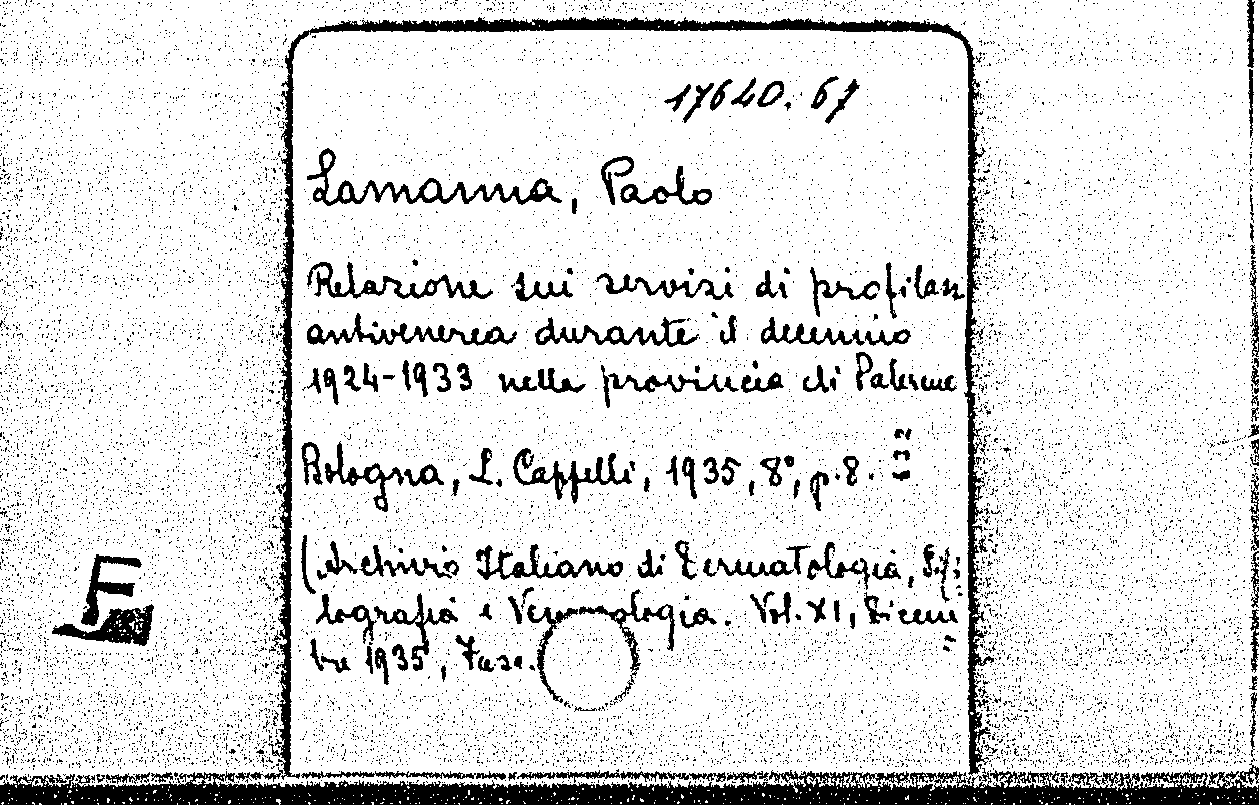 17640. 67
Lamanna, Paolo
Relazione sui servizi di profilassi
antivenerea durante il decennio
1924-1933 nella provincia di Palermo
Bologna, L. Cappelli, 1935, 8°, p. 8.
(Archivio Italiano di Dermatologia, Sifi-
lografia e Venereologia. Vol. XI, Dicem
bre 1935, Fasc.
F